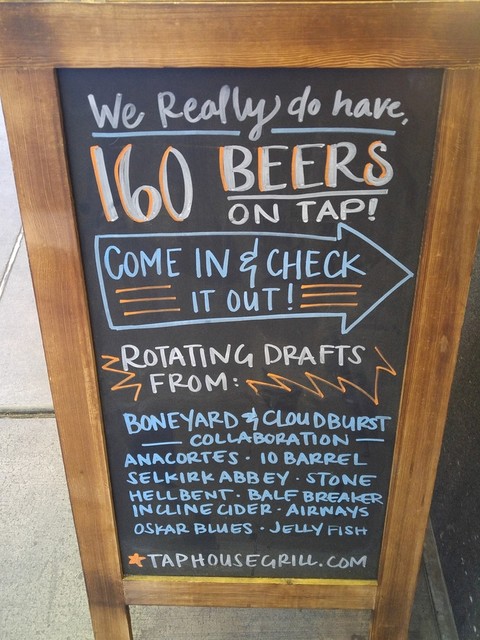 We Really do have,
160 BEERS
ON TAP!
COME IN & CHECK
IT OUT!
ROTATING DRAFTS
FROM:
BONEYARD & CLOUDBURST
COLLABORATION
ANACORTES · 10 BARREL
SELKIRK ABBEY · STONE
HELLBENT · BALE BREAKER
INCLINE CIDER · AIRWAYS
OSKAR BLUES · JELLYFISH
*TAPHOUSEGRILL.COM